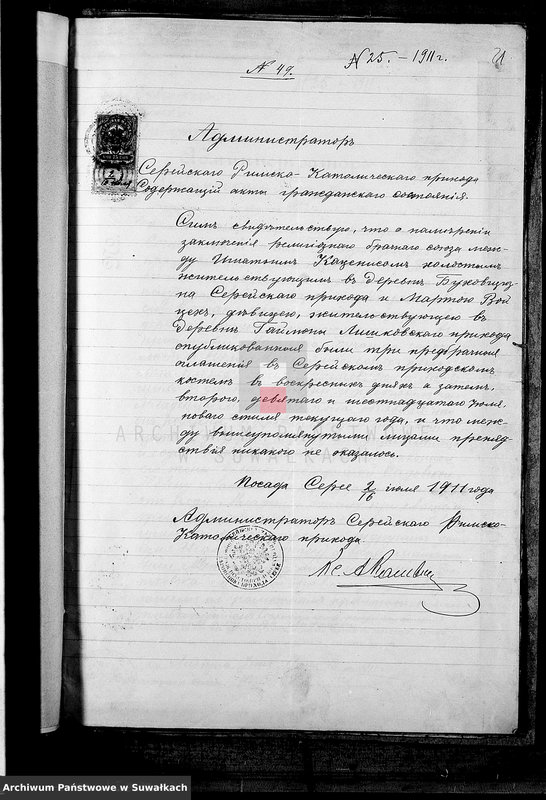 N 49.
N 25. - 1911 г.
21
Администраторъ
Серейского Римско-Католического прихода
Содержащій акты гражданского состоянія.
Симъ свидѣтельствую, что о намѣреніи
заключенія религіознаго брачнаго союза меж-
ду Игнатіемъ холостымъ
жительствующимъ въ деревнѣ
на Серейского прихода и Мартою Вой
цехъ, дѣвицею, жительствующею въ
деревнѣ Лишковского прихода
опубликованныя были три предбрачныя
оглашенія въ Серейскомъ приходскомъ
костелѣ въ воскресныхъ дняхъ а затемъ,
второго, девятаго и шестнадцатого Іюля,
новаго стиля текущаго года, и что меж-
ду вышеупомянутыми лицами препят
ствія никакого не оказалось.
Посада Серее 3/16 июля 1911 года
Администраторъ Серейского Римско-
Католического прихода.
Кс. А
ARCHIWUM PAŃSTWOWE
W SUWAŁKACH
Archiwum Państwowe w Suwałkach